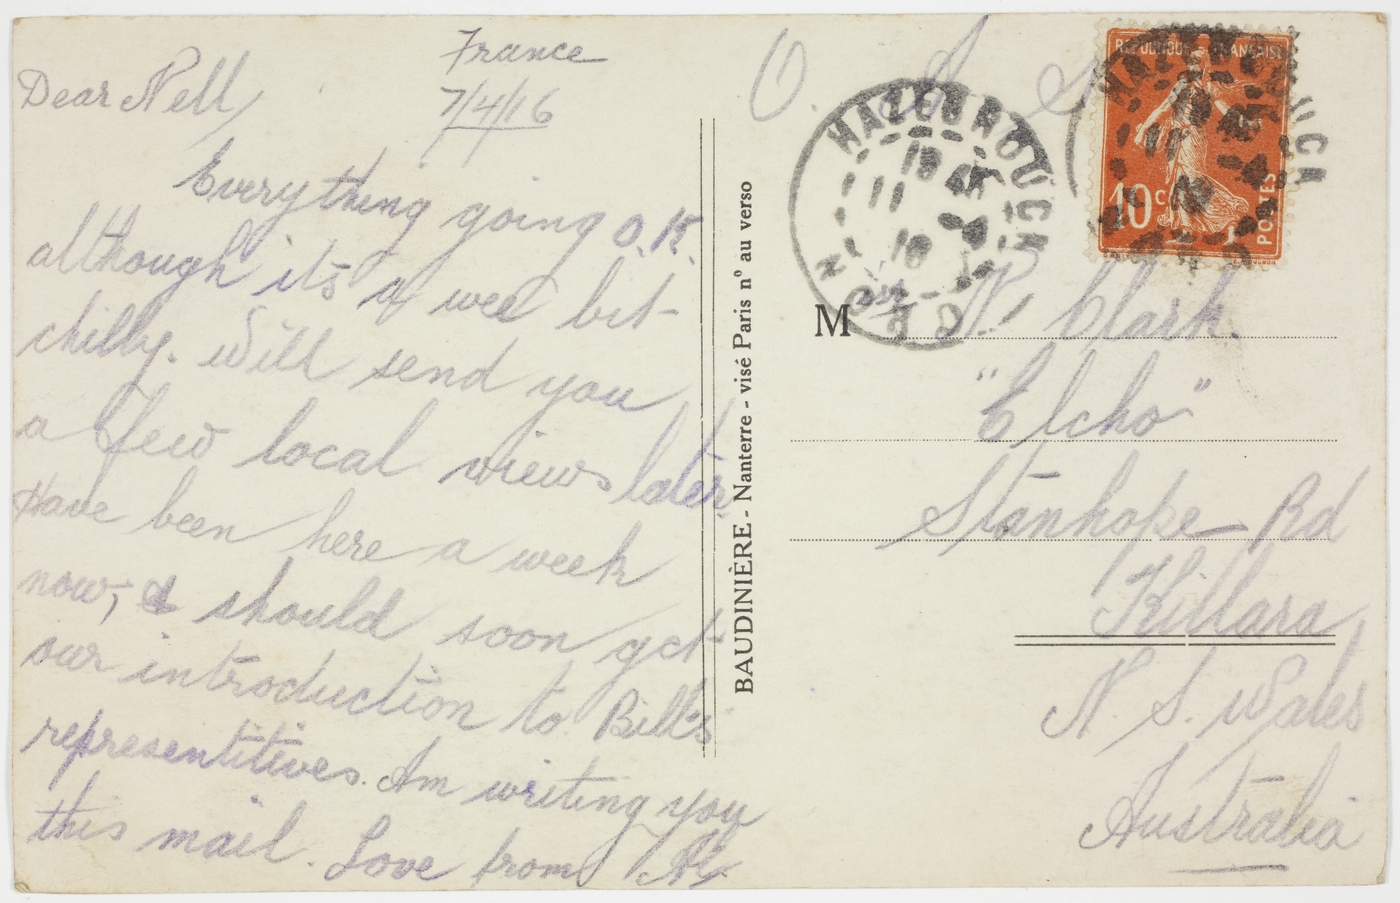 France
7/4/16
Dear Nell,
Everything going O.K.
although its a wee bit
chilly. Will send you
a few local views later.
Have been here a week
now, & should soon get
our introduction to Bill's
representitives. Am writing you
this mail. Love from
BAUDINIÈRE - Nanterre - visé Paris nº au verso
O. A. S.
HAZEBROUCK
NORD
RÉPUBLIQUE FRANÇAISE
10 c
POSTES
M
Clark.
"Elcho"
Stanhope Rd
Killara
N. S. Wales
Australia